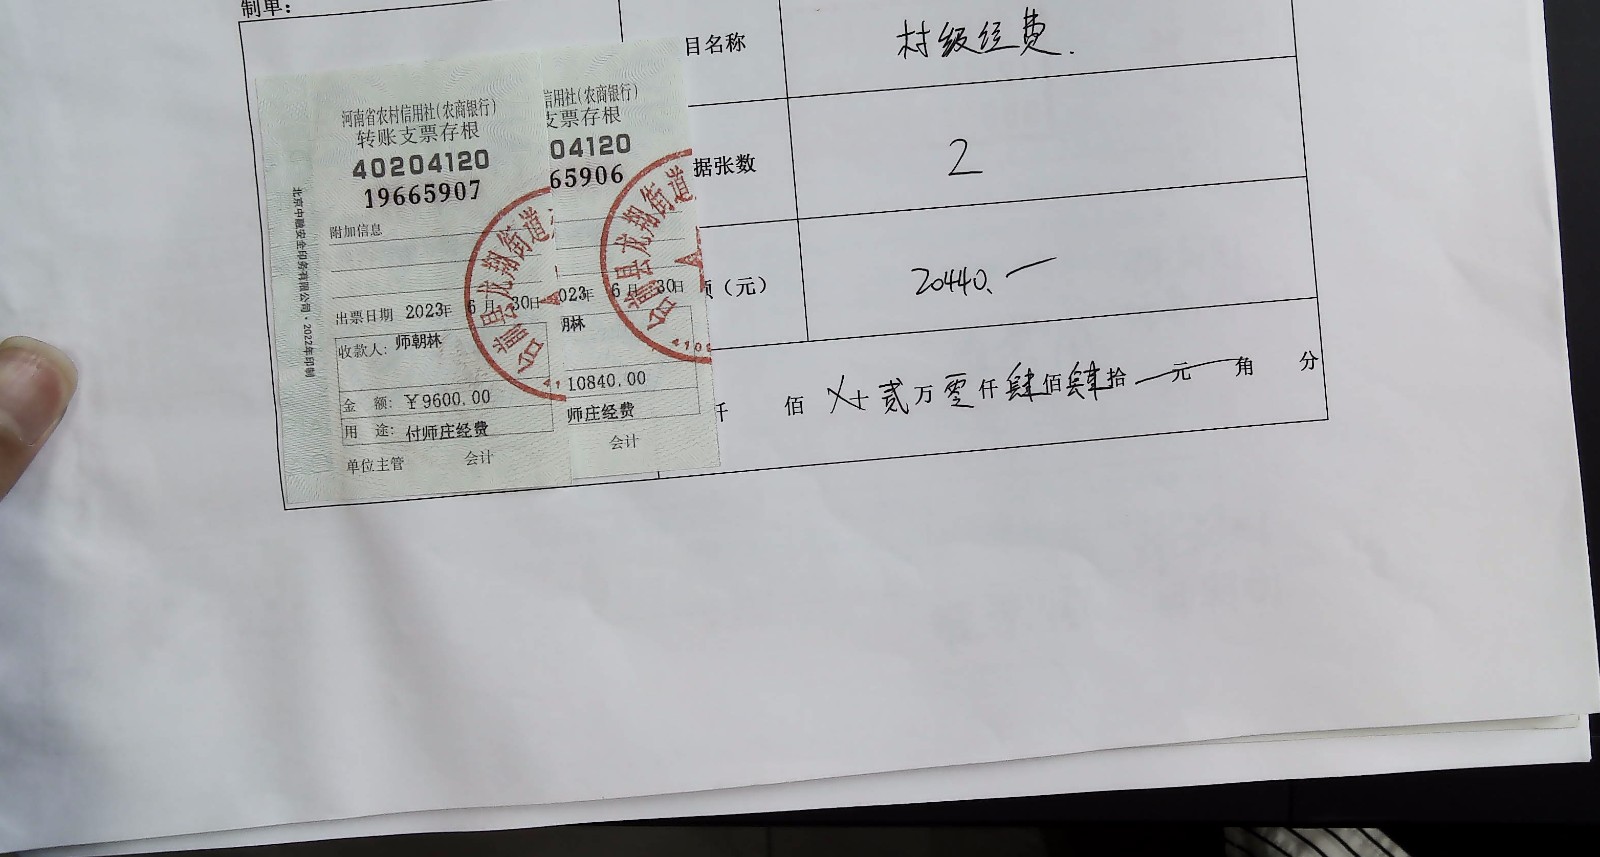 制单：
目名称 村级经费.
据张数 2
（元） 20440.一
仟 佰 乂十贰万零仟肆佰肆拾 元 角 分
河南省农村信用社(农商银行)
转账支票存根
40204120
19665907
附加信息
出票日期 2023年 6月 30日
收款人: 师朝林
金 额: ￥9600.00
用 途: 付师庄经费
单位主管 会计
北京中融安全印务有限公司·2022年印制
信用社(农商银行)
支票存根
04120
65906
023年 6月 30日
朝林
10840.00
师庄经费
会计
龙翔街道
县龙翔街道
410